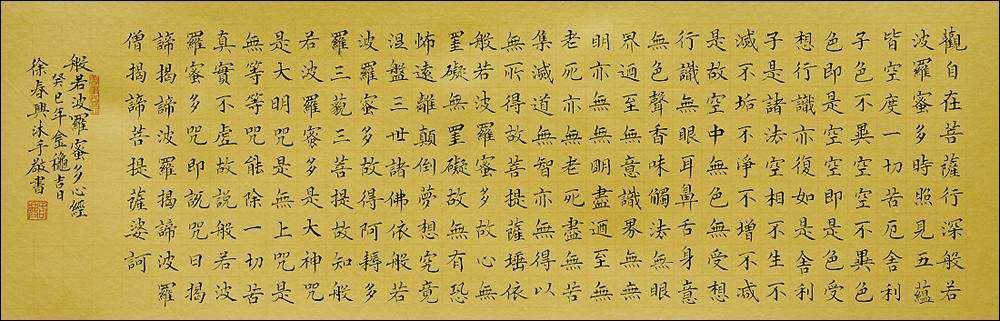 觀自在菩薩行深般若
波羅蜜多時照見五蘊
皆空度一切苦厄舍利
子色不異空空不異色
色即是空空即是色受
想行識亦復如是舍利
子是諸法空相不生不
滅不垢不淨不增不減
是故空中無色無受想
行識無眼耳鼻舌身意
無色聲香味觸法無眼
界迺至無意識界無無
明亦無無明盡迺至無
老死亦無老死盡無苦
集滅道無智亦無得以
無所得故菩提薩埵依
般若波羅蜜多故心無
罣礙無罣礙故無有恐
怖遠離顛倒夢想究竟
涅盤三世諸佛依般若
波羅蜜多故得阿耨多
羅三藐三菩提故知般
若波羅蜜多是大神咒
是大明咒是無上咒是
無等等咒能除一切苦
真實不虛故說般若波
羅蜜多咒即說咒曰揭
諦揭諦波羅揭諦波羅
僧揭諦菩提薩婆訶
般若波羅蜜多心經
癸巳年金穐吉日
徐春興沐手敬書